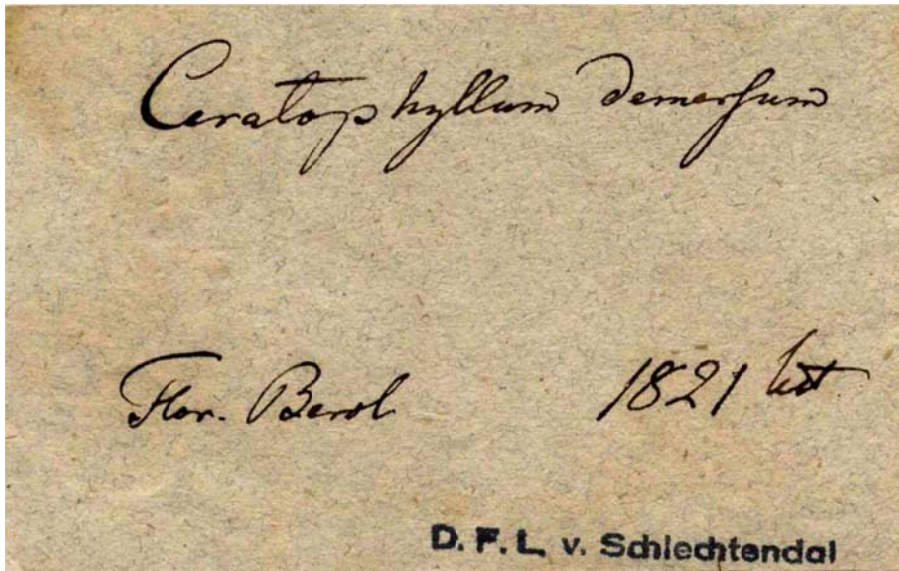 Ceratophyllum demersum
Flor. Berol
1821
D. F. L. v. Schlechtendal